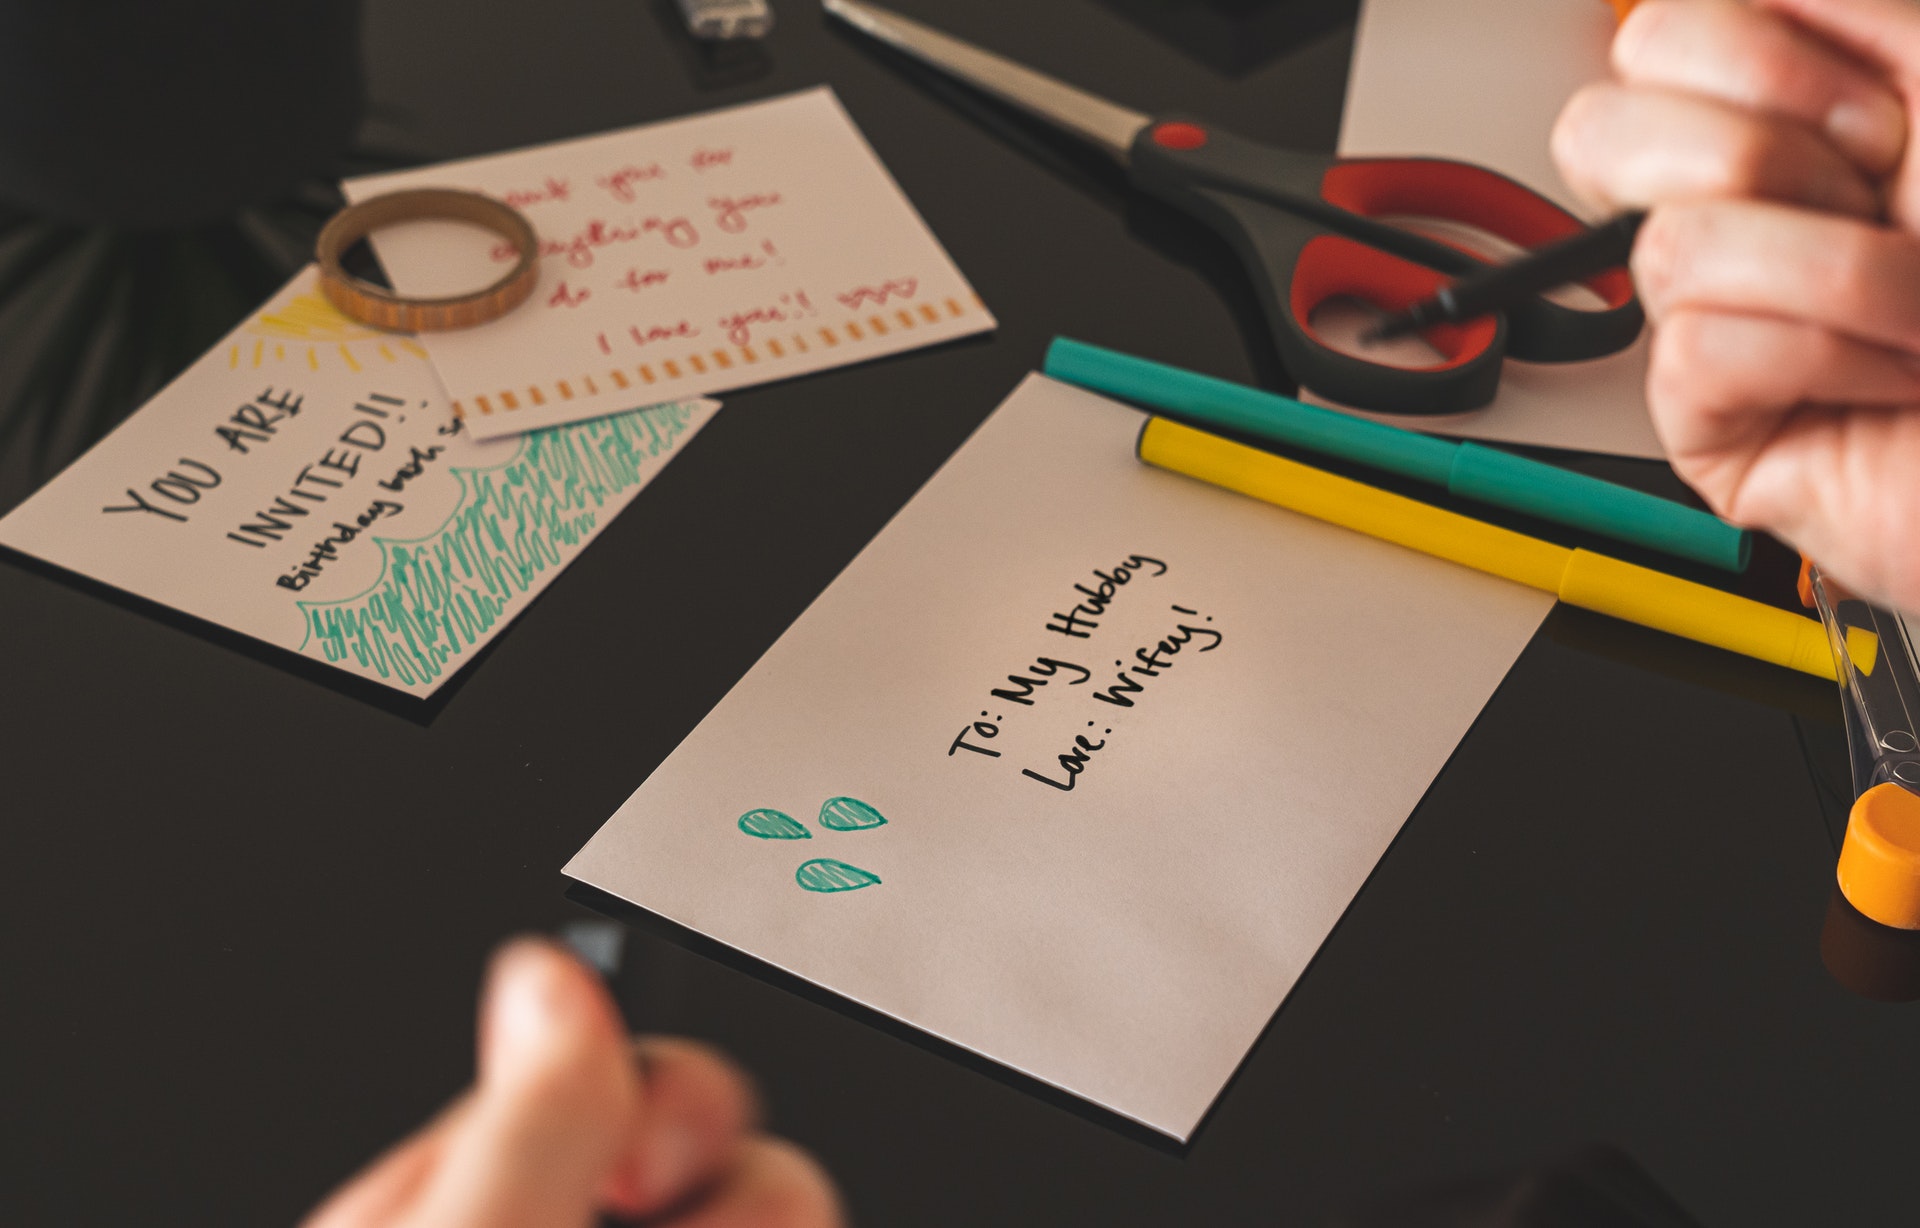 you for
everything you
do for me!
I love you!!
YOU ARE
INVITED!!
Birthday bash
To: My Hubby
Love: Wifey!